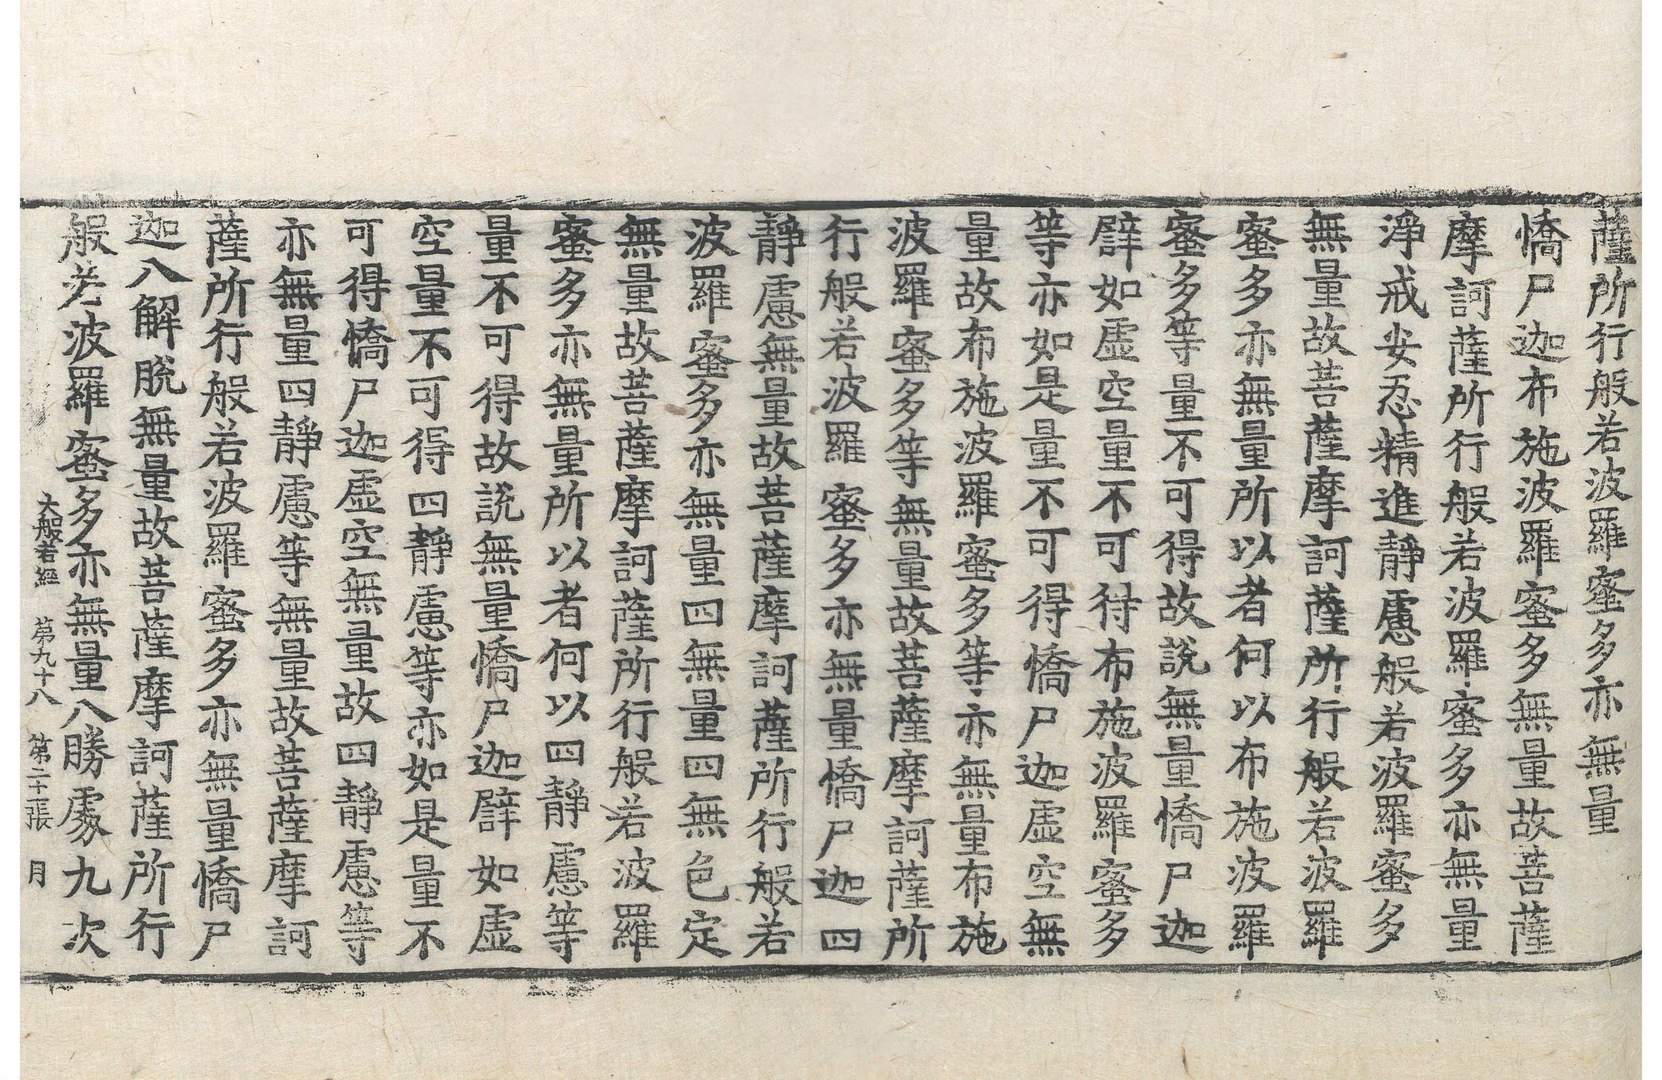 薩所行般若波羅蜜多亦無量
憍尸迦布施波羅蜜多無量故菩薩
摩訶薩所行般若波羅蜜多亦無量
淨戒安忍精進靜慮般若波羅蜜多
無量故菩薩摩訶薩所行般若波羅
蜜多亦無量所以者何以布施波羅
蜜多等量不可得故說無量憍尸迦
譬如虛空量不可得布施波羅蜜多
等亦如是量不可得憍尸迦虛空無
量故布施波羅蜜多等亦無量布施
波羅蜜多等無量故菩薩摩訶薩所
行般若波羅蜜多亦無量憍尸迦四
靜慮無量故菩薩摩訶薩所行般若
波羅蜜多亦無量四無量四無色定
無量故菩薩摩訶薩所行般若波羅
蜜多亦無量所以者何以四靜慮等
量不可得故說無量憍尸迦譬如虛
空量不可得四靜慮等亦如是量不
可得憍尸迦虛空無量故四靜慮等
亦無量四靜慮等無量故菩薩摩訶
薩所行般若波羅蜜多亦無量憍尸
迦八解脫無量故菩薩摩訶薩所行
般若波羅蜜多亦無量八勝處九次
大般若經 第九十八 第二十一張 月